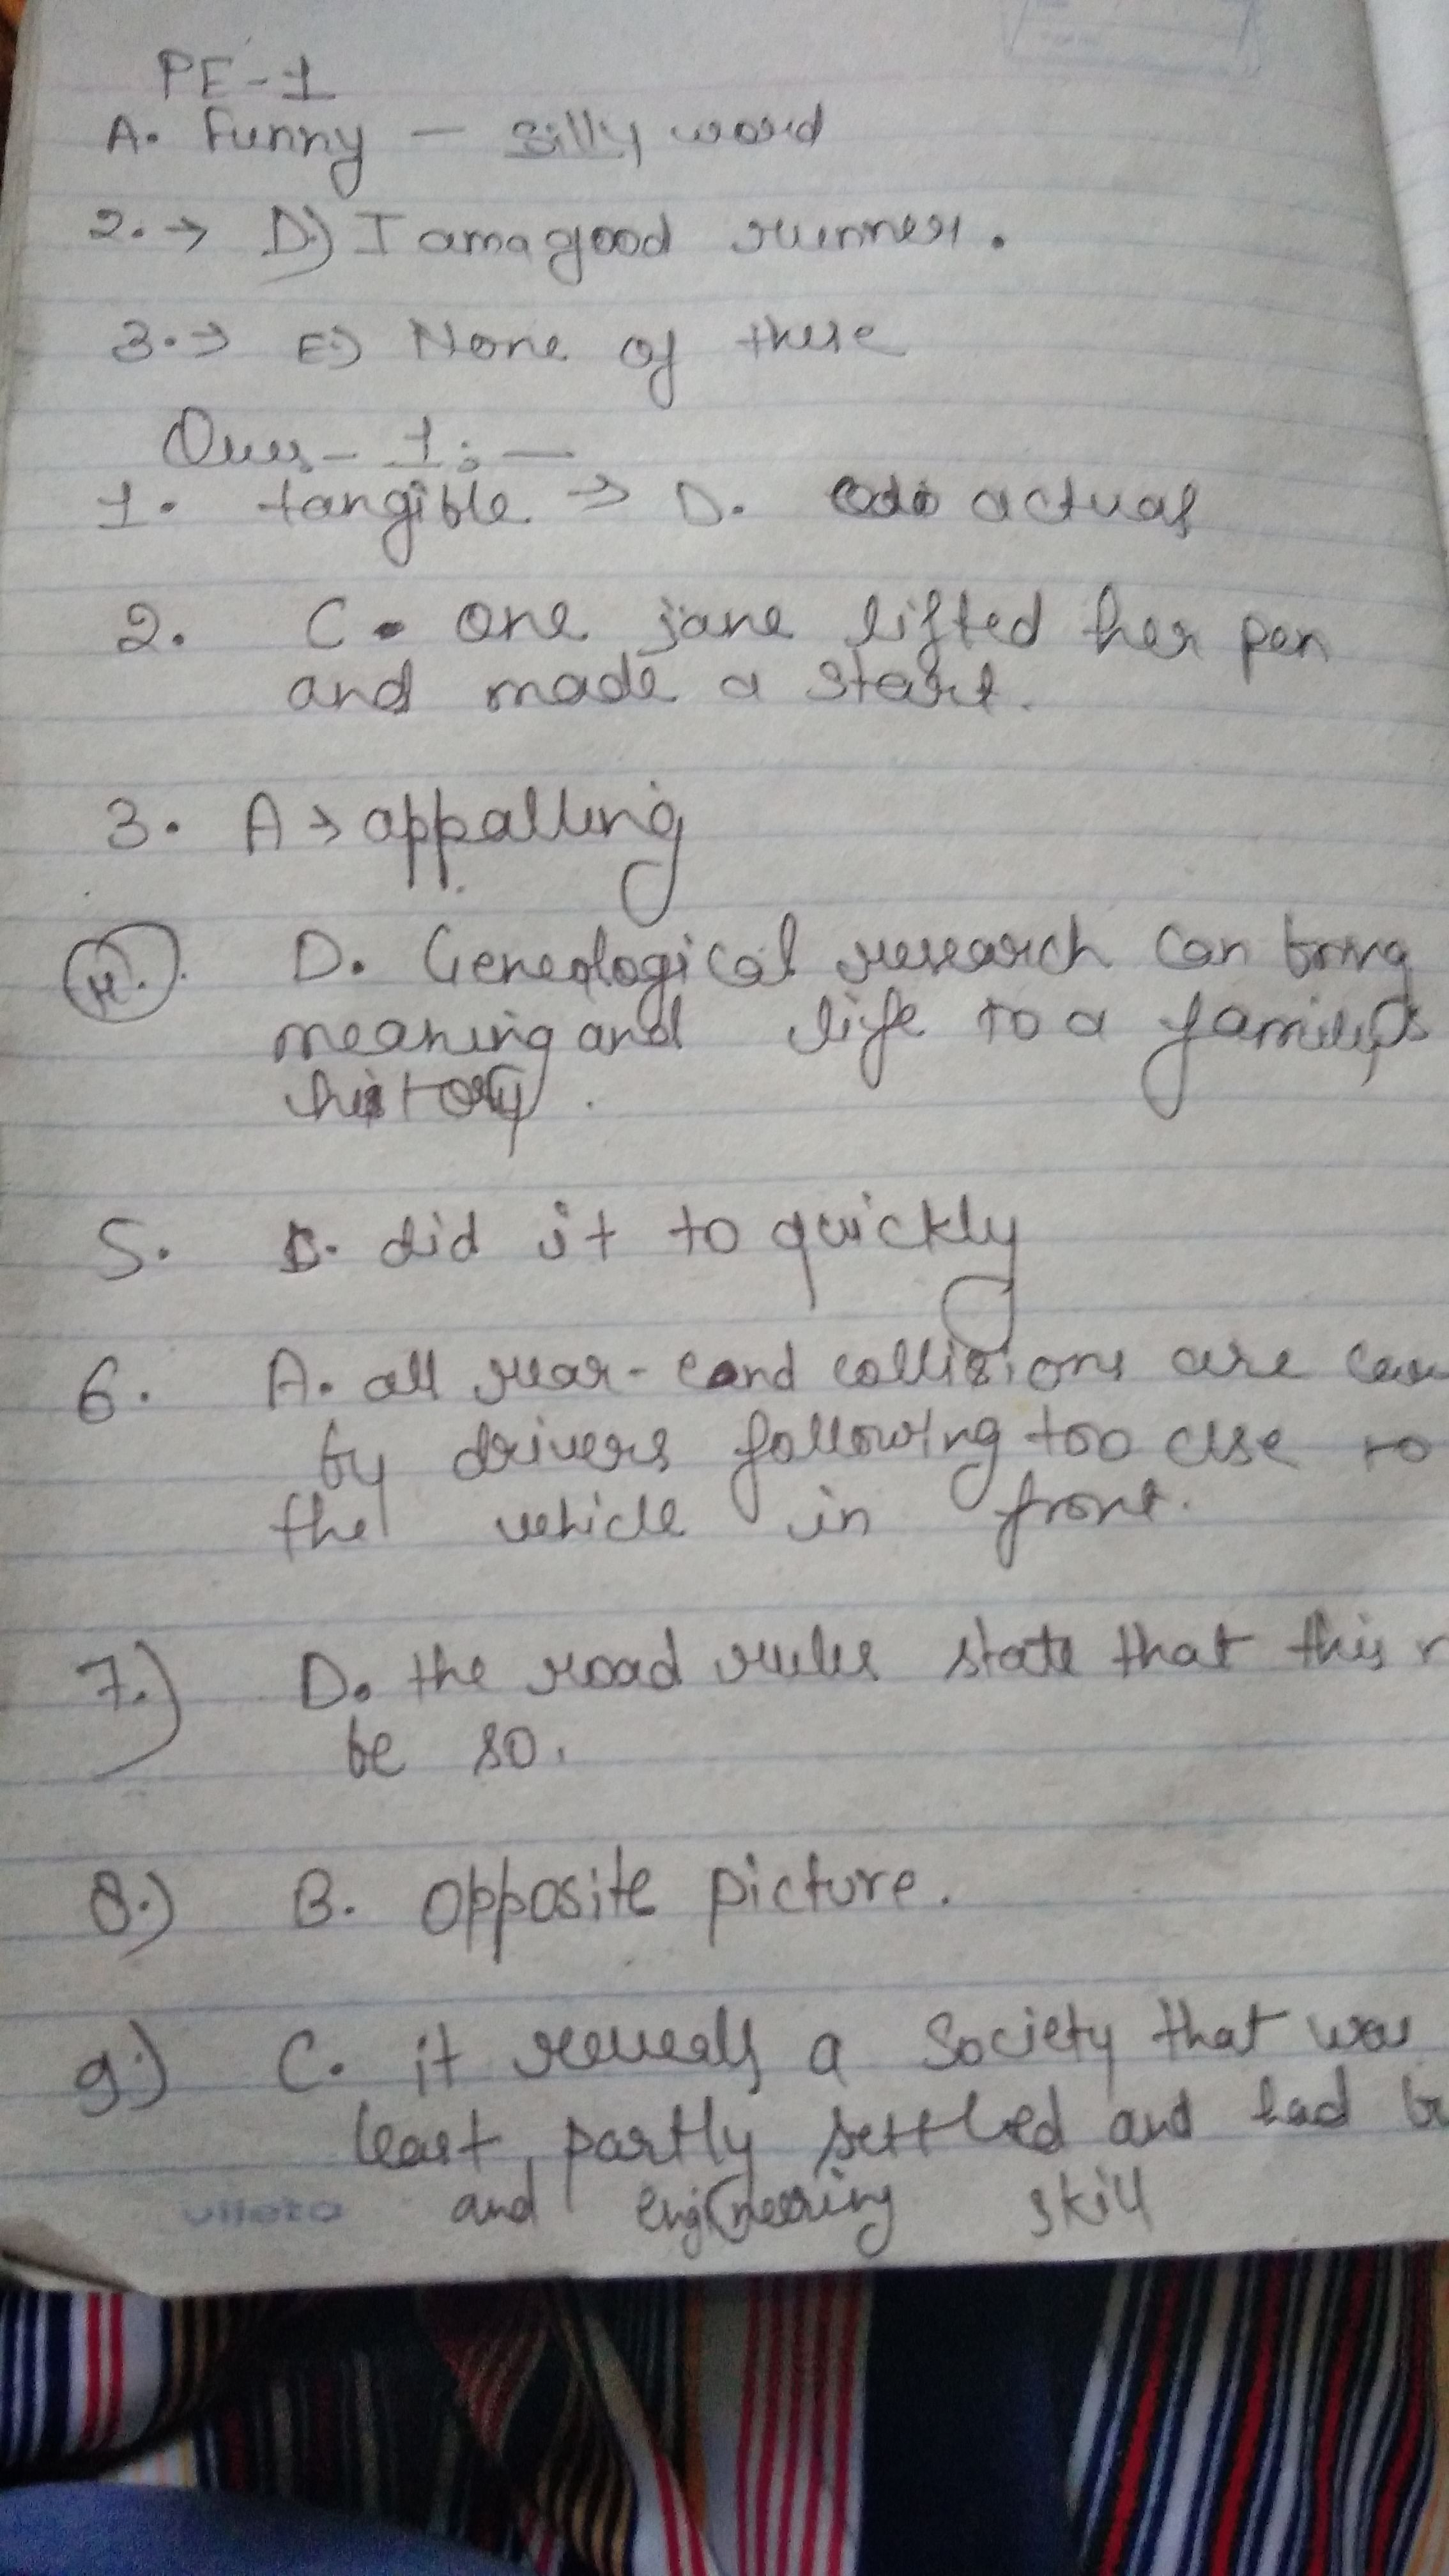 PE-1
A. Funny — silly word
2. → D) I am a good runner.
3. → E) None of these
Ques - 1: —
1. tangible → D. actual
2. C. One jane lifted her pen
and made a start.
3. A → appalling
4. D. Geneological research can bring
meaning and life to a family's
history.
5. B. did it to quickly
6. A. all rear-end collisions are
by drivers following too clse to
the vehicle in front.
7.) D. the road rules state that this
be so.
8.) B. opposite picture.
9.) C. it reveals a Society that was
least partly settled and had
and engineering skill